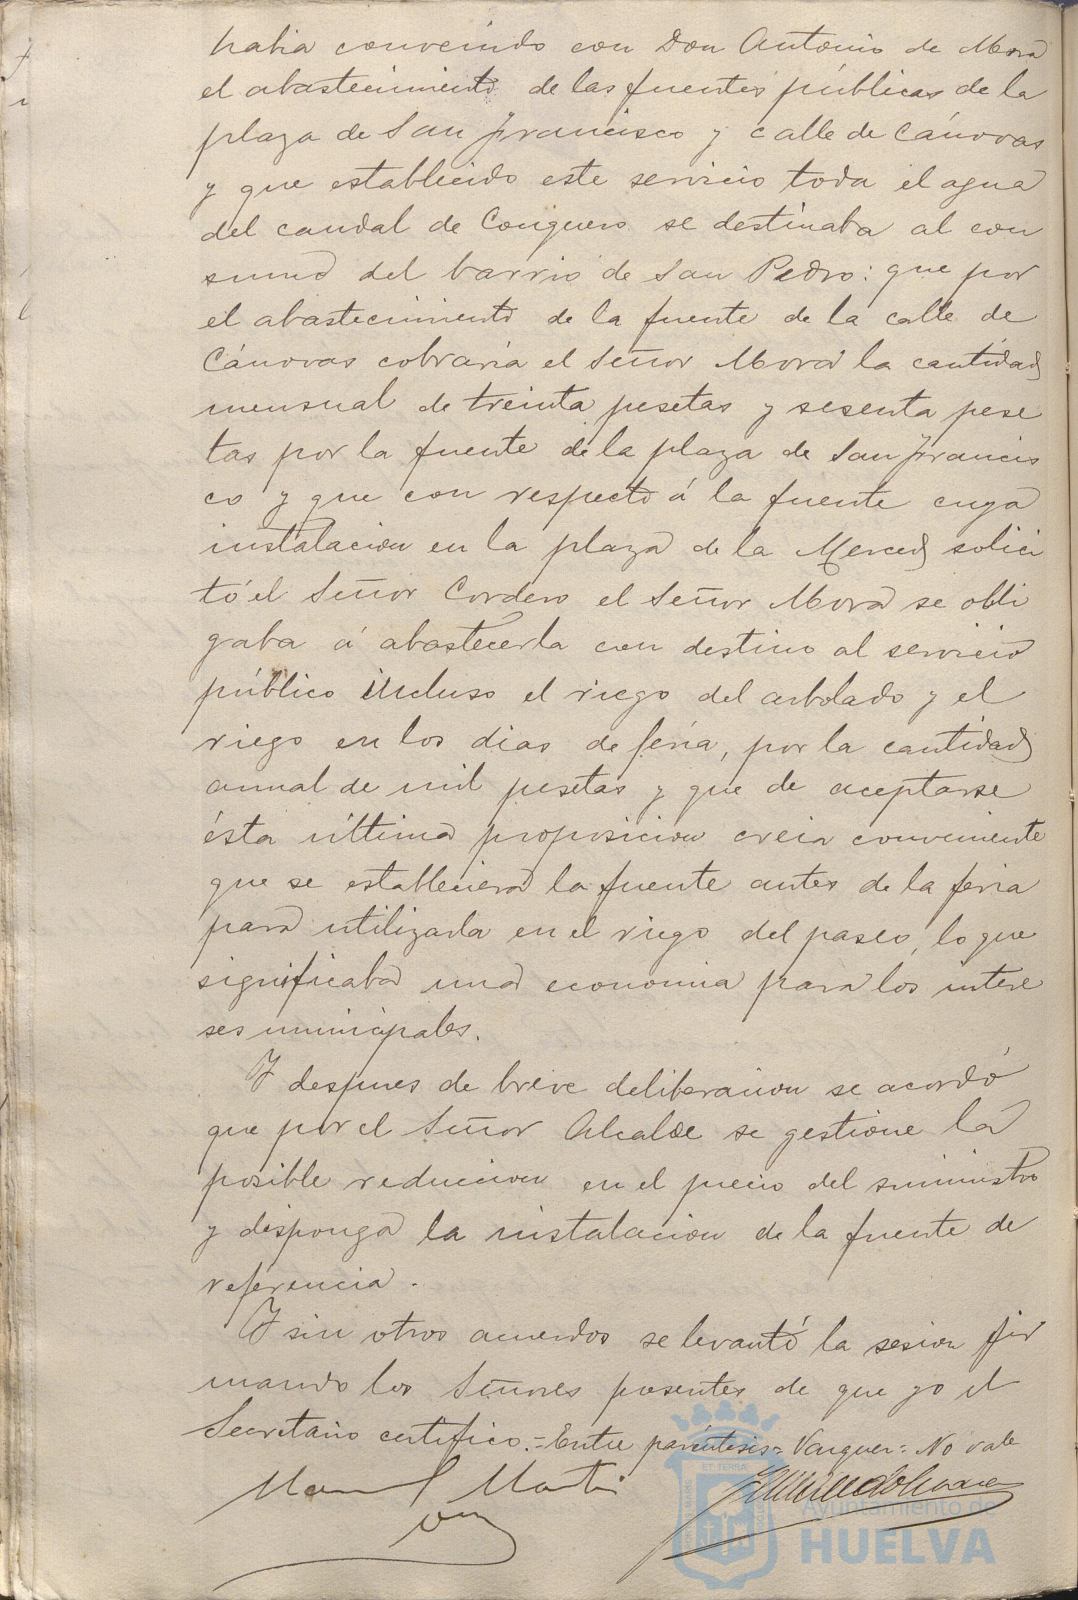 habia convenido con Don Antonio de Mora
el abastecimiento de las fuentes públicas de la
plaza de San Francisco y calle de Cánovas
y que establecido este servicio toda el agua
del caudal de Conquero se destinaba al con
sumo del barrio de San Pedro: que por
el abastecimiento de la fuente de la calle de
Cánovas cobraria el Señor Mora la cantidad
mensual de treinta pesetas y sesenta pese
tas por la fuente de la plaza de San Francis
co y que con respecto á la fuente cuya
instalacion en la plaza de la Merced solici
tó el Señor Cordero el Señor Mora se obli
gaba á abastecerla con destino al servicio
público incluso el riego del arbolado y el
riego en los dias de feria, por la cantidad
anual de mil pesetas y que de aceptarse
ésta última proposicion creia conveniente
que se estableciera la fuente antes de la feria
para utilizarla en el riego del paseo, lo que
significaba una economia para los intere
ses municipales.
Y despues de breve deliberacion se acordó
que por el Señor Alcalde se gestione la
posible reduccion en el precio del suministro
y disponga la instalacion de la fuente de
referencia.
Y sin otros acuerdos se levantó la sesion fir
mando los Señores presentes de que yo el
Secretario certifico.=Entre paréntesis= =No vale
Manuel Martin
ET TERRA
Ayuntamiento de
HUELVA